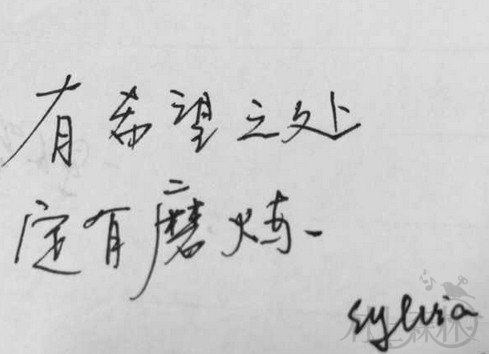 有希望之处
定有磨炼
sylvia